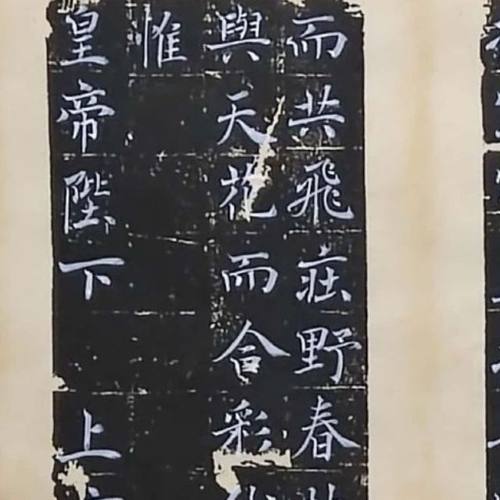 而共飛莊野春
與天花而合彩
惟
皇帝陛下 上